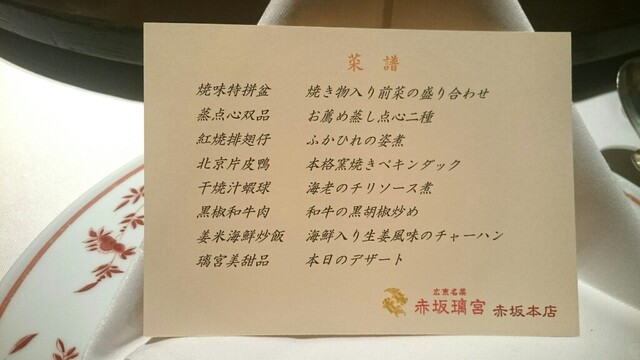 菜譜
焼味特拼盆 焼き物入り前菜の盛り合わせ
蒸点心双品 お薦め蒸し点心二種
紅焼排翅仔 ふかひれの姿煮
北京片皮鴨 本格窯焼きペキンダック
干焼汁蝦球 海老のチリソース煮
黒椒和牛肉 和牛の黒胡椒炒め
姜米海鮮炒飯 海鮮入り生姜風味のチャーハン
璃宮美甜品 本日のデザート
広東名菜
赤坂璃宮 赤坂本店